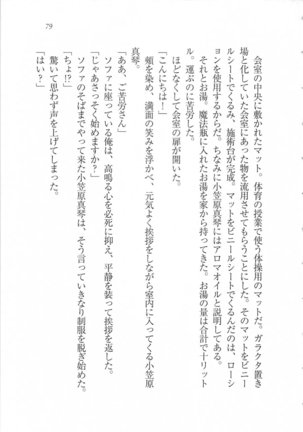 79
会室の中央に敷かれたマット。体育の授業で使う体操用のマットだ。ガラクタ置き
場と化していた会室にあった物を流用させてもらうことにした。そのマットをビニー
ルシートでくるみ、施術台が完成。マットをビニールシートでくるんだのは、ローシ
ョンを使用するからだ。ちなみに小笠原真琴にはアロマオイルと説明してある。
それとお湯。魔法瓶に入れたお湯を家から持ってきた。お湯の量は合計で十リット
ル。運ぶのに苦労した。
ほどなくして会室の扉が開いた。
「こんにちは！」
頬を染め、満面の笑みを浮かべ、元気よく挨拶をしながら室内に入ってくる小笠原
真琴。
「ああ、ご苦労さん」
ソファに座っている俺は、高鳴る心を必死に抑え、平静を装って挨拶を返した。
「じゃあさっそく始めますか？」
ソファのそばまでやって来た小笠原真琴は、そう言っていきなり制服を脱ぎ始めた。
「ちょ!?」
驚いて思わず声を上げてしまった。
「はい？」